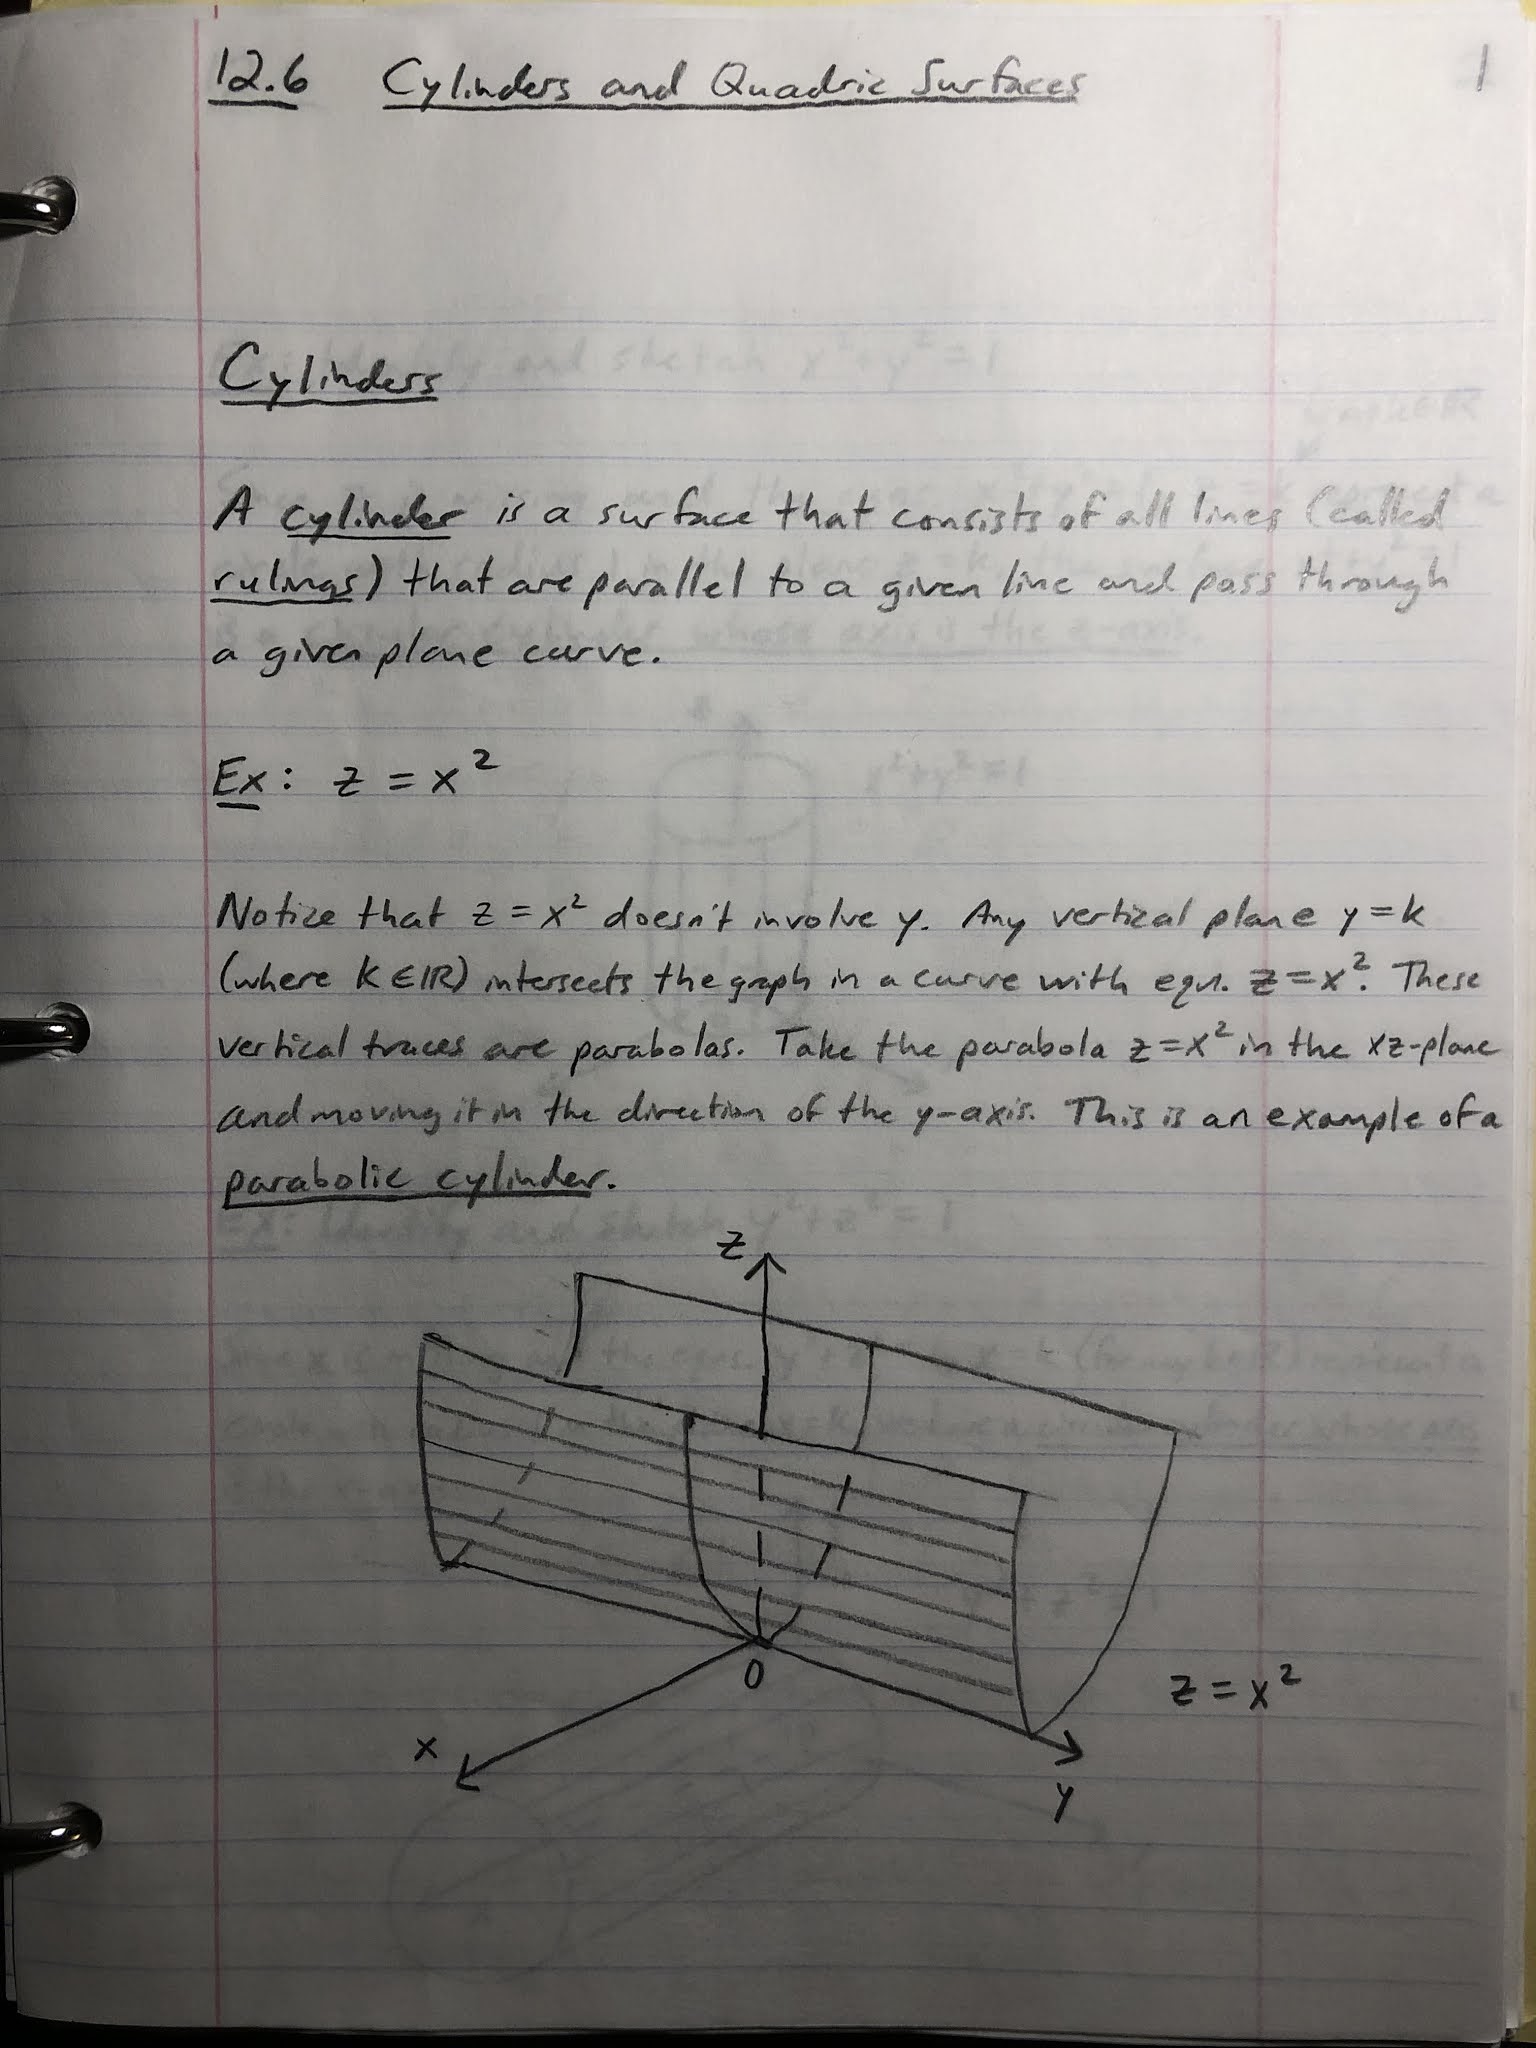 12.6 Cylinders and Quadric Surfaces
1
Cylinders
A cylinder is a surface that consists of all lines (called
rulings) that are parallel to a given line and pass through
a given plane curve.
Ex: z = x²
Notice that z = x² doesn't involve y. Any vertical plane y = k
(where k ∈ ℝ) intersects the graph in a curve with eqn. z = x². These
vertical traces are parabolas. Take the parabola z = x² in the xz-plane
and moving it in the direction of the y-axis. This is an example of a
parabolic cylinder.
z
0
z = x²
x
y